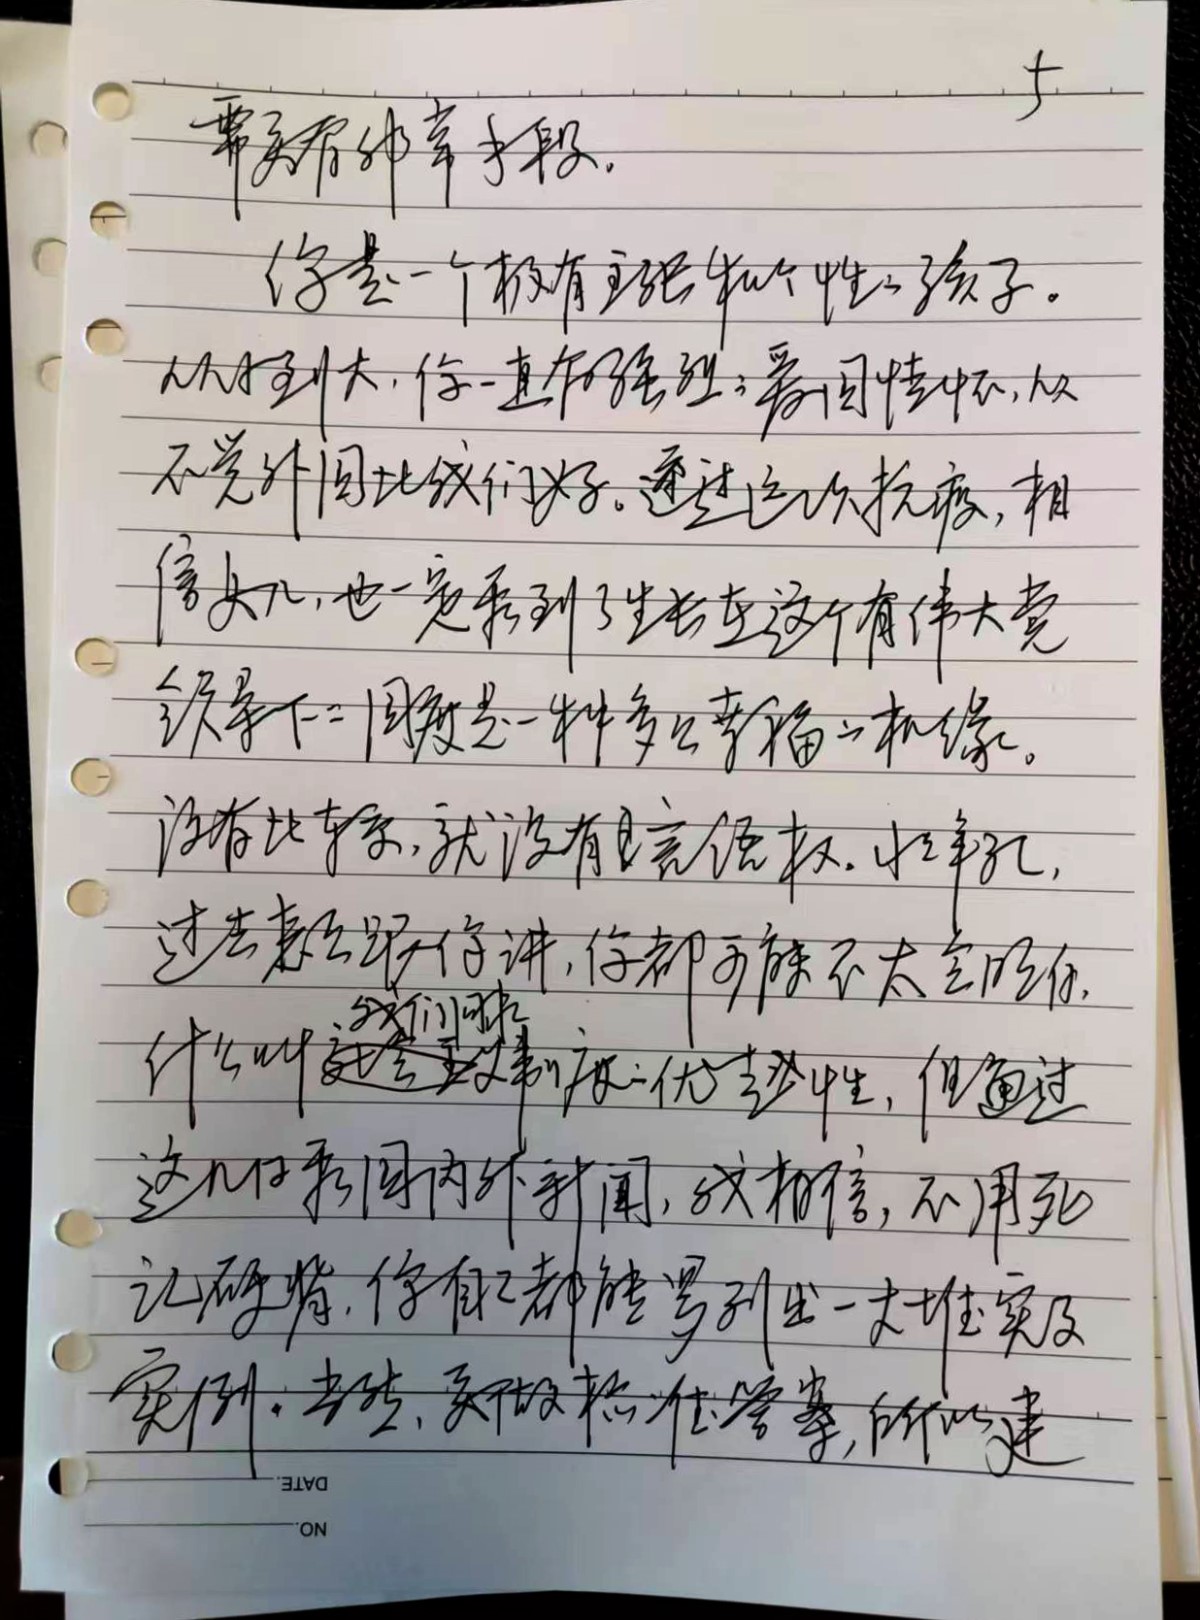 5
需要有非常手段。
你是一个极有主张和个性的孩子。
从小到大，你一直有强烈的爱国情怀，从
不觉外国比我们好。通过这次抗疫，相
信女儿，也一定看到了生长在这个有伟大党
领导下的国度是一种多么幸福的机缘。
没有比较，就没有话语权。
过去怎么跟你讲，你都可能不太会明白，
我们国家
什么叫制度的优越性，但通过
这几日看国内外新闻，我相信，不用死
记硬背，你自己都能罗列出一大堆实及
实例。当然，要做标准答案，所以建
DATE.
NO.